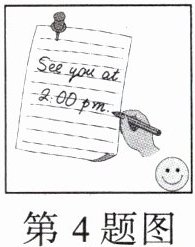 See you at
2:00 pm.
第4题图